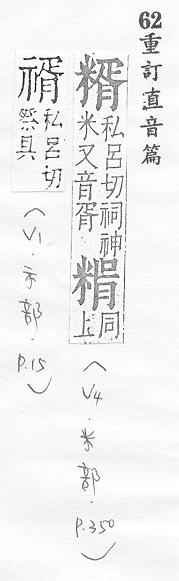 62重訂直音篇
糈
私呂切祠神
米又音胥
同
上
(V4.米部.p.350)
私呂切
祭具
(V1.示部.p.15)